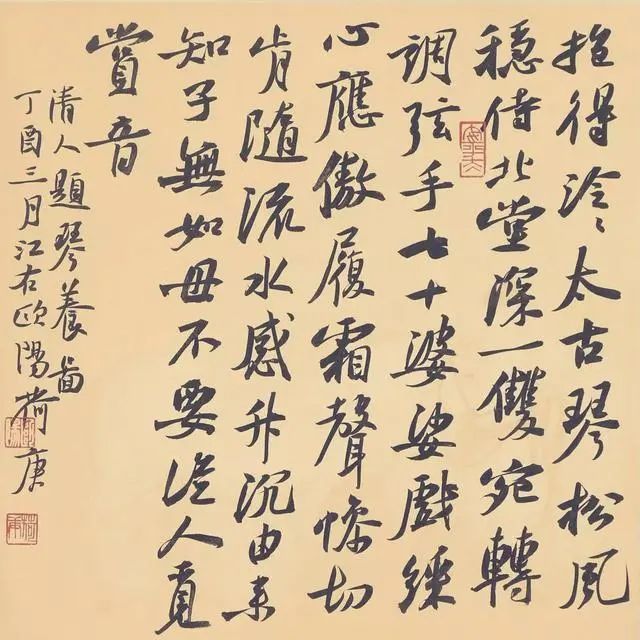 抱得泠々太古琴松風
穩侍北堂深一雙宛轉
調弦手七十婆娑戲綵
心應傲履霜聲慘切
肯隨流水感升沉由来
知子無如母不要從人覓
賞音
清人題琴養圖
丁酉三月江右歐陽荷庚